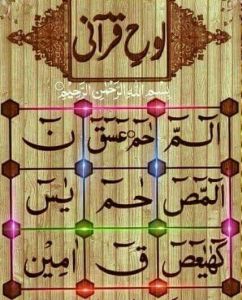 لوح قرآنی
بسم الله الرحمن الرحیم
الٓمّٓ حٰمٓ عٓسٓقٓ نٓ
الٓمّٓصٓ حٰمٓ یٰسٓ
کٓھٰیٰعٓصٓ قٓ اٰمِیْن